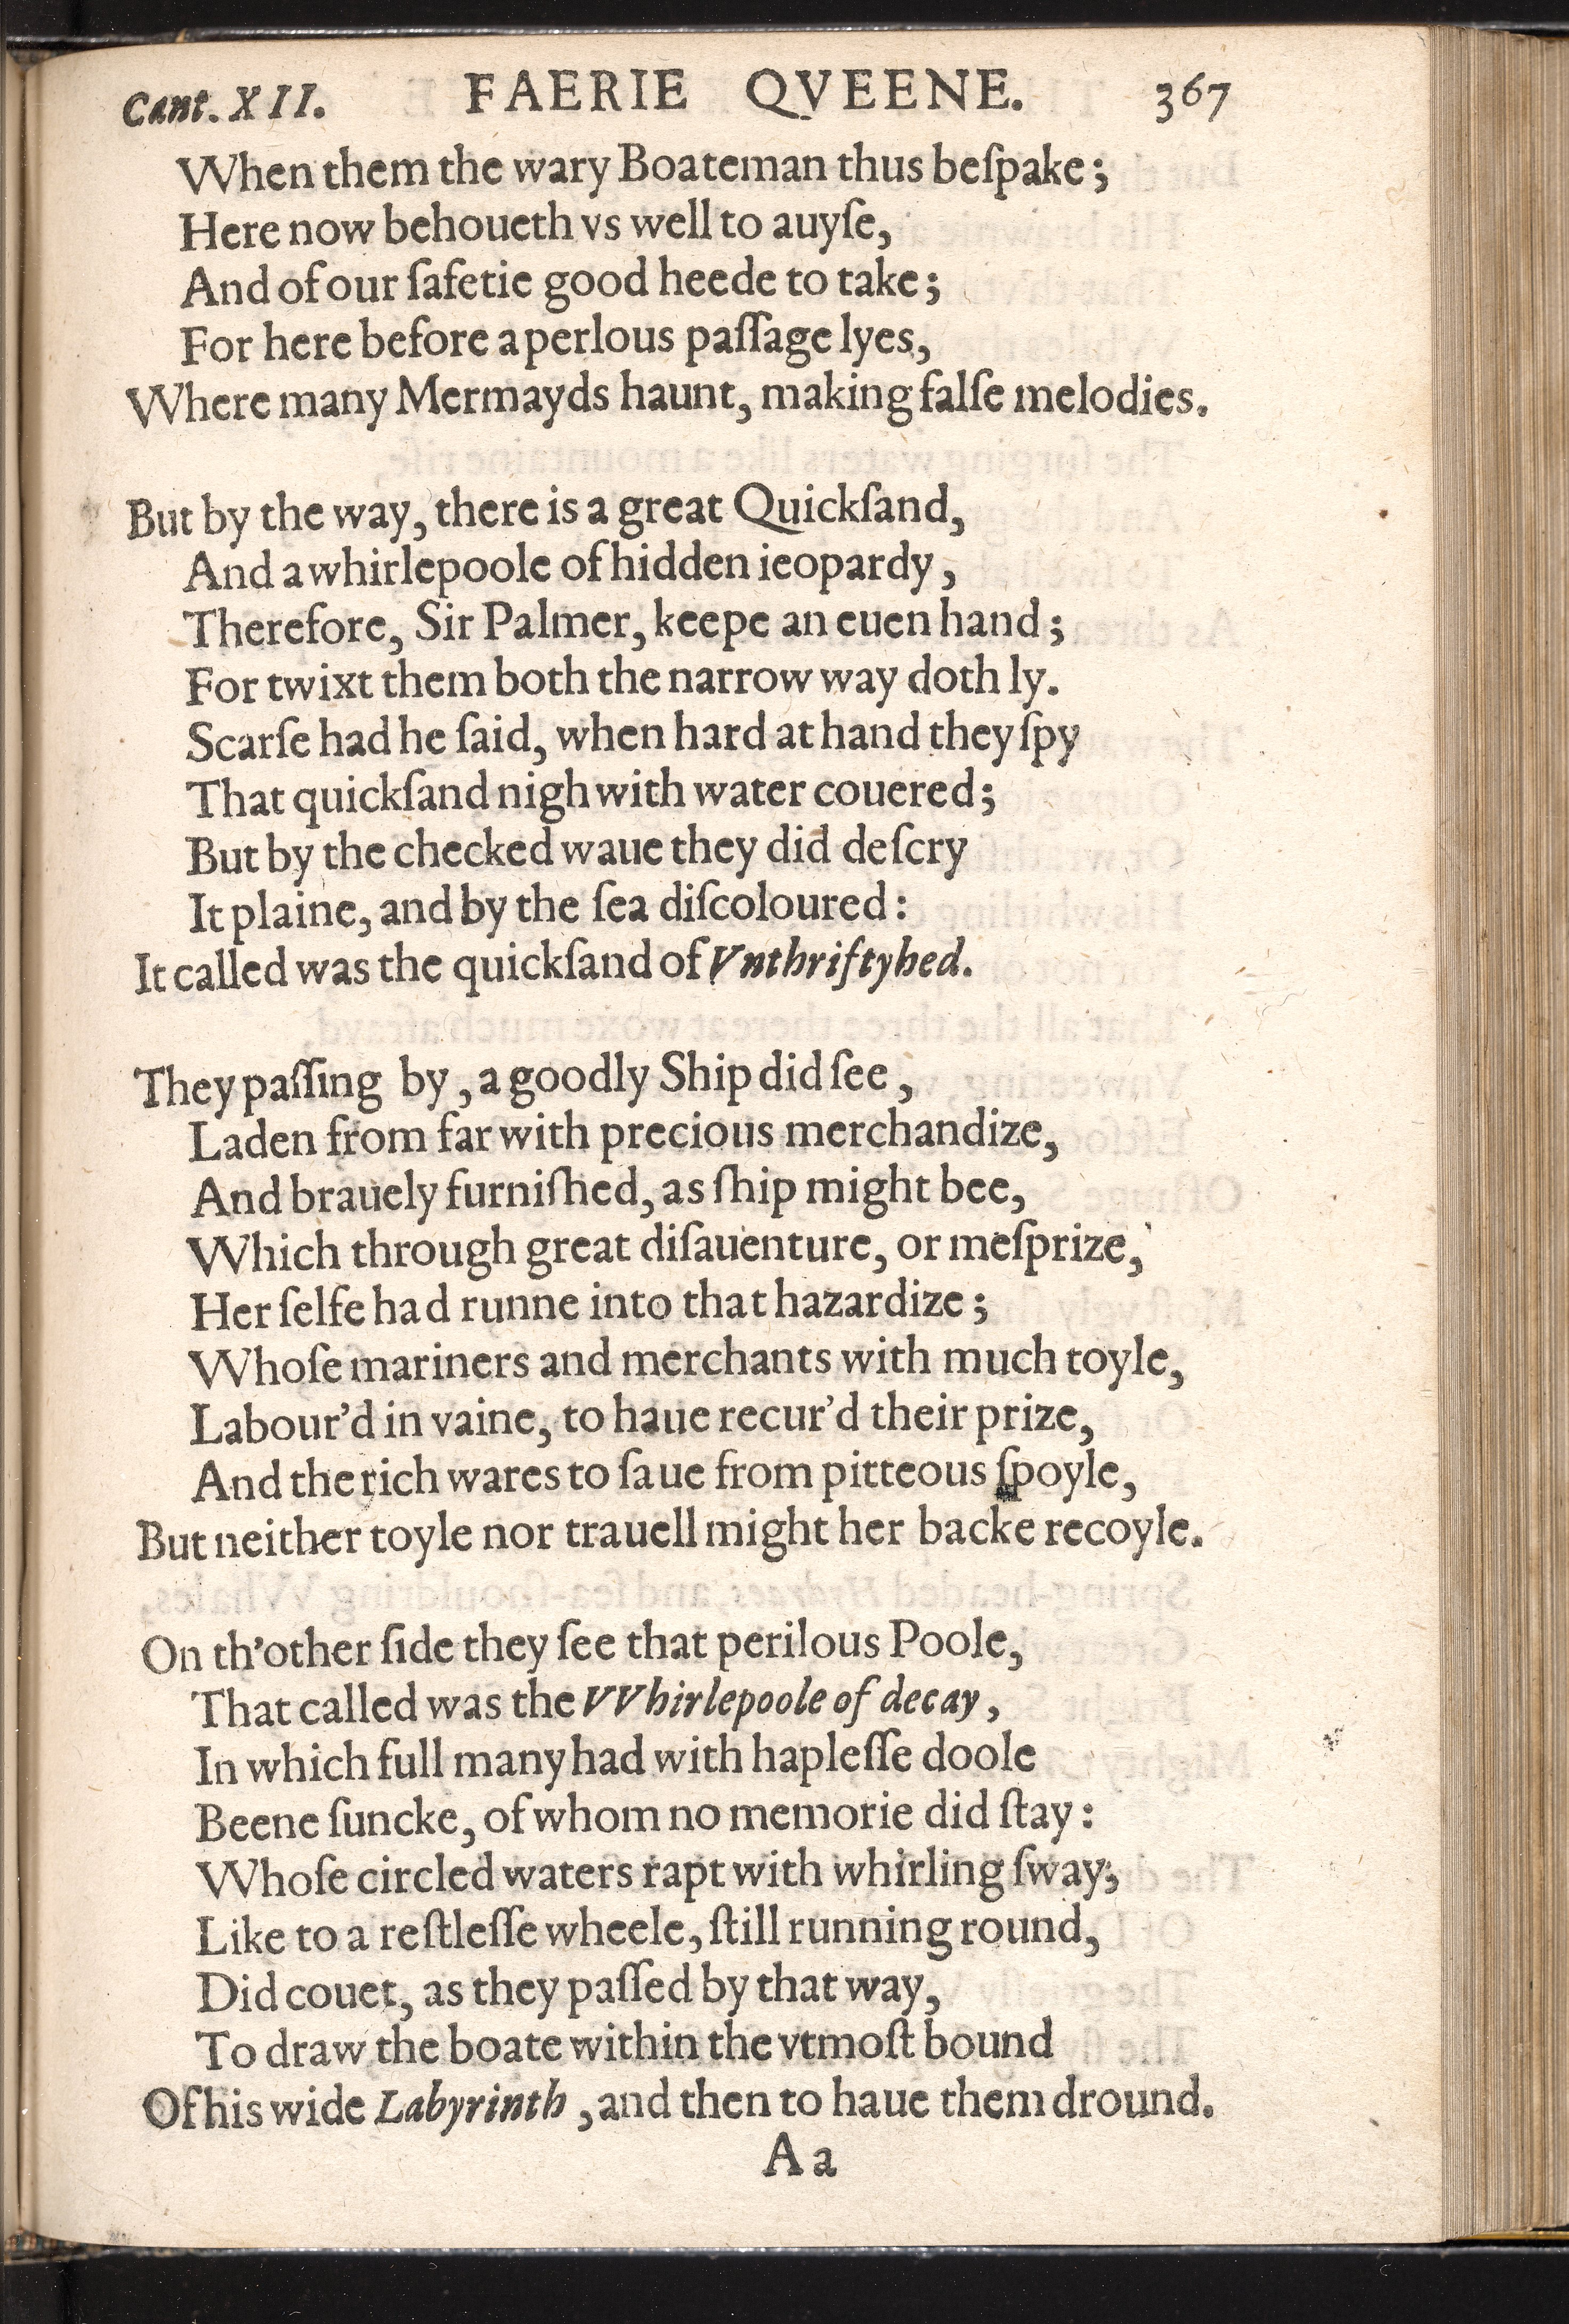 Cant. XII. FAERIE QVEENE. 367
When them the wary Boateman thus beſpake;
Here now behoueth vs well to auyſe,
And of our ſafetie good heede to take;
For here before a perlous paſſage lyes,
Where many Mermayds haunt, making falſe melodies.
But by the way, there is a great Quickſand,
And a whirlepoole of hidden ieopardy,
Therefore, Sir Palmer, keepe an euen hand;
For twixt them both the narrow way doth ly.
Scarſe had he ſaid, when hard at hand they ſpy
That quickſand nigh with water couered;
But by the checked waue they did deſcry
It plaine, and by the ſea diſcoloured:
It called was the quickſand of Vnthriftyhed.
They paſſing by, a goodly Ship did ſee,
Laden from far with precious merchandize,
And brauely furniſhed, as ſhip might bee,
Which through great diſauenture, or meſprize,
Her ſelfe had runne into that hazardize;
Whoſe mariners and merchants with much toyle,
Labour'd in vaine, to haue recur'd their prize,
And the rich wares to ſaue from pitteous ſpoyle,
But neither toyle nor trauell might her backe recoyle.
On th'other ſide they ſee that perilous Poole,
That called was the VVhirlepoole of decay,
In which full many had with hapleſſe doole
Beene ſuncke, of whom no memorie did ſtay:
Whoſe circled waters rapt with whirling ſway,
Like to a reſtleſſe wheele, ſtill running round,
Did couet, as they paſſed by that way,
To draw the boate within the vtmoſt bound
Of his wide Labyrinth, and then to haue them dround.
Aa